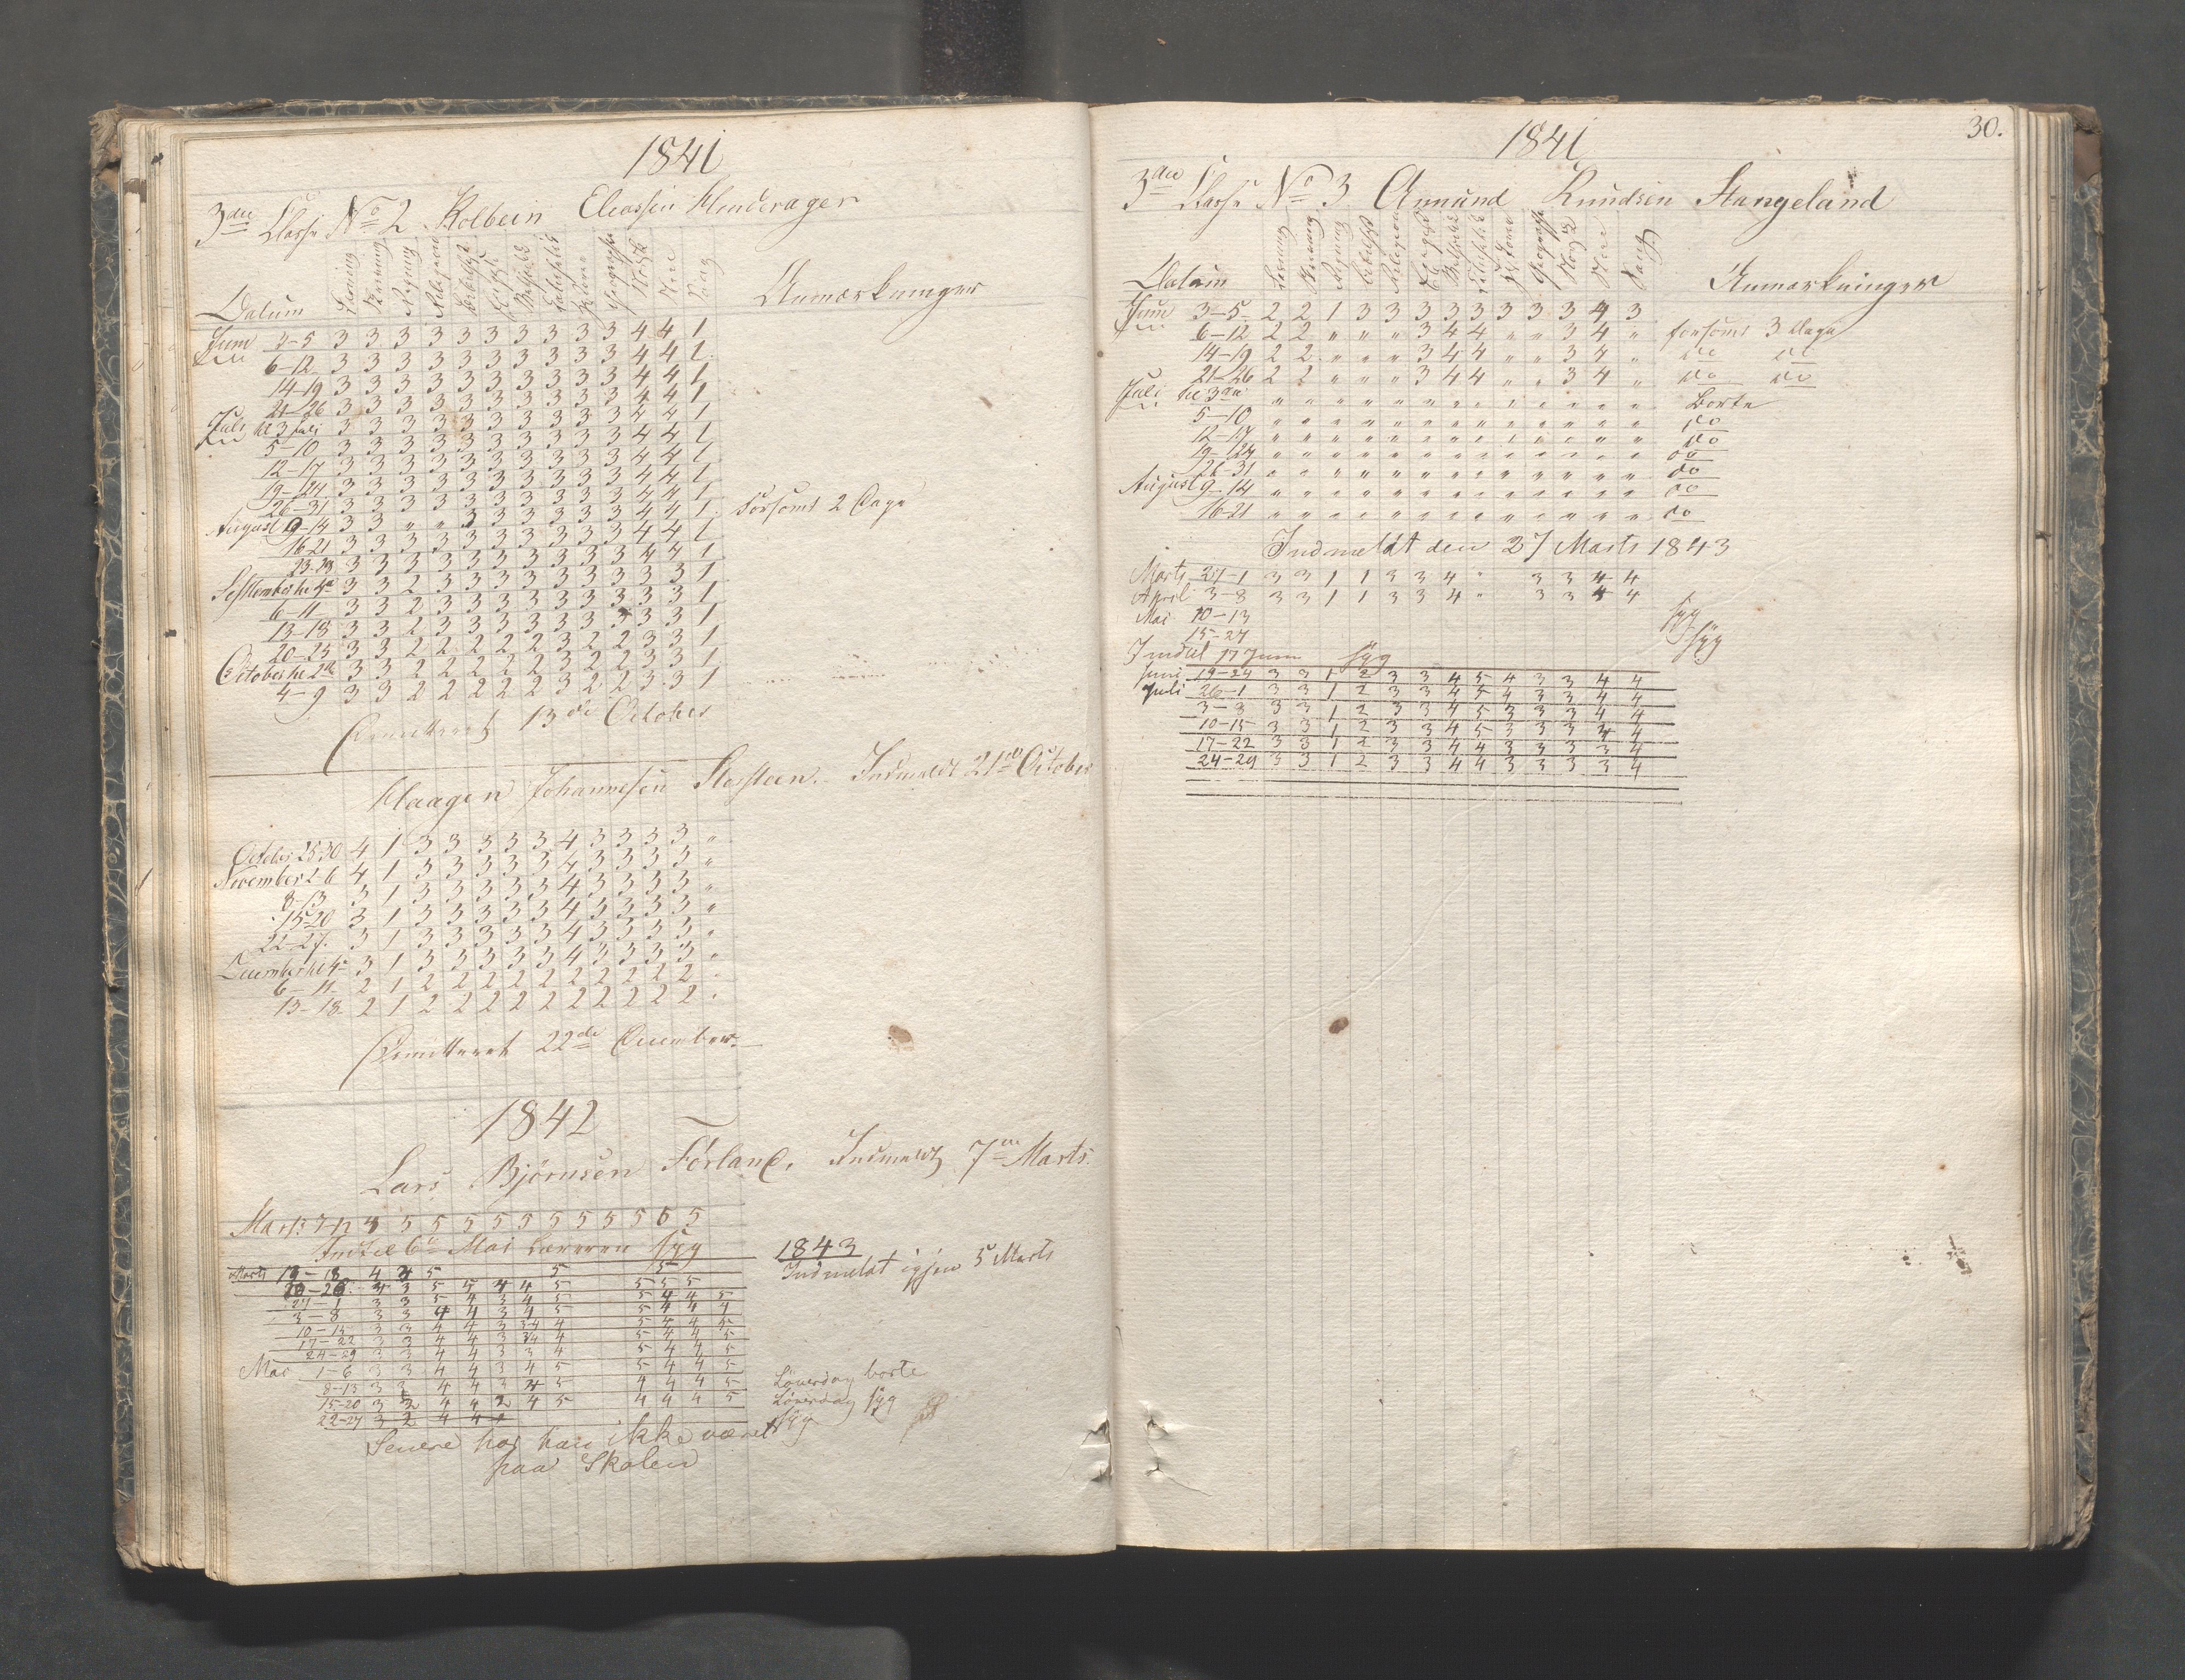 1841
3die Classe No 2 Kolbein Eliassen Hinderager
Datum Læsning Regning Religion Geographie Sang Anmærkninger
Juni 3-5 3 3 3 3 3 3 3 3 3 3 4 4 1
6-12 3 3 3 3 3 3 3 3 3 3 4 4 1
14-19 3 3 3 3 3 3 3 3 3 3 4 4 1
21-26 3 3 3 3 3 3 3 3 3 3 4 4 1
Juli til 3 Juli 3 3 3 3 3 3 3 3 3 3 4 4 1
5-10 3 3 3 3 3 3 3 3 3 3 4 4 1
12-17 3 3 3 3 3 3 3 3 3 3 4 4 1
19-24 3 3 3 3 3 3 3 3 3 3 4 4 1
26-31 3 3 3 3 3 3 3 3 3 3 4 4 1
August 9-14 3 3 " " 3 3 3 3 3 3 4 4 1 Forsømt 2 Dage
16-21 3 3 3 3 3 3 3 3 3 3 4 4 1
23-28 3 3 3 3 3 3 3 3 3 3 4 4 1
September til 4de 3 3 2 3 3 3 3 3 3 3 3 3 1
6-11 3 3 2 3 3 3 3 3 3 3 3 3 1
13-18 3 3 2 3 3 3 3 3 3 3 3 3 1
20-25 3 3 2 2 2 2 2 3 2 2 3 3 1
October til 2den 3 3 2 2 2 2 2 3 2 2 3 3 1
4-9 3 3 2 2 2 2 2 3 2 2 3 3 1
Dimitteret 13de October
Haagen Johannesen Storsteen. Indmeldt 21de October
October 25-30 4 1 3 3 3 3 3 4 3 3 3 3 "
November 2-6 4 1 3 3 3 3 3 4 3 3 3 3 "
8-13 3 1 3 3 3 3 3 4 3 3 3 3 "
15-20 3 1 3 3 3 3 3 4 3 3 3 3 "
22-27 3 1 3 3 3 3 3 4 3 3 3 3 "
December til 4de 3 1 3 3 3 3 3 4 3 3 3 3 "
6-11 2 1 2 2 2 2 2 2 2 2 2 2 "
13-18 2 1 2 2 2 2 2 2 2 2 2 2 "
Dimitteret 22de December
1842
Lars Bjørnsen Førland. Indmeldt 7de Marts.
Marts 7-12 4 5 5 5 5 5 5 5 5 5 5 5
Indtil 6te Mai Læreren syg
1843
Indmeldt igjen 5 Marts
Marts 13-18 4 4 5 5 5
20-26 4 3 5 5 4 4 5 5 5 5
27-1 3 3 5 4 3 4 5 5 4 4 5
3-8 3 3 4 4 3 4 5 5 4 4 4
10-15 3 3 4 4 3 3-4 4 5 4 4 5
17-22 3 3 4 4 3 3-4 4 5 4 4 5
24-29 3 3 4 4 3 3 4 5 4 4 5
Mai 1-6 3 3 4 4 3 4 5 5 4 4 5
8-13 3 3 4 4 3 4 5 4 4 4 5 Løverdag borte
15-20 3 2 4 4 2 4 5 4 4 4 5 Løverdag syg
22-27 3 2 4 4 syg
Senere har han ikke været
paa Skolen
30.
1841
3die Classe No 3. Amund Knudsen Stangeland
Datum Læsning Regning Religion Historie Geographie Sang Anmærkninger
Juni 3-5 2 2 1 3 3 3 3 3 3 3 3 4 3
6-12 2 2 " " " 3 4 4 " " 3 4 " forsømt 3 Dage
14-19 2 2 " " " 3 4 4 " " 3 4 " do do
21-26 2 2 " " " 3 4 4 " " 3 4 " do do
Juli til 3die " " " " " " " " " " " " " Borte
5-10 " " " " " " " " " " " " " do
12-17 " " " " " " " " " " " " " do
19-24 " " " " " " " " " " " " " do
26-31 " " " " " " " " " " " " " do
August 9-14 " " " " " " " " " " " " " do
16-21 " " " " " " " " " " " " " do
Indmeldt den 27 Marts 1843
Marts 27-1 3 3 1 1 3 3 4 " 3 3 4 4
April 3-8 3 3 1 1 3 3 4 " 3 3 4 4
Mai 10-13 syg
15-27 syg
Indtil 17 Juni syg
Juni 19-24 3 3 1 2 3 3 4 5 4 3 3 4 4
Juli 26-1 3 3 1 2 3 3 4 5 4 3 3 4 4
3-8 3 3 1 2 3 3 4 5 3 3 3 4 4
10-15 3 3 1 2 3 3 4 5 3 3 3 3 4
17-22 3 3 1 2 3 3 4 4 3 3 3 3 4
24-29 3 3 1 2 3 3 4 4 3 3 3 3 4